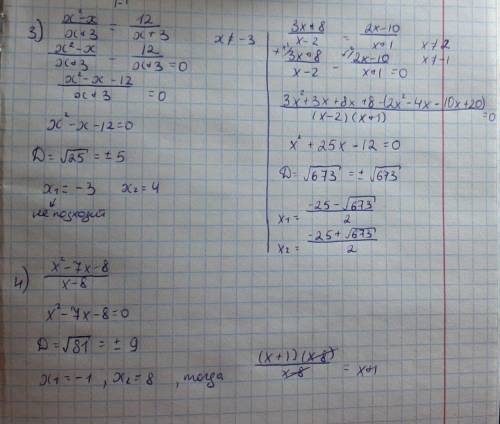 3) (x²-x)/(x+3) = 12/(x+3) x ≠ -3
(x²-x)/(x+3) - 12/(x+3) = 0
(x²-x-12)/(x+3) = 0
x²-x-12=0
D=√25 = ±5
x₁ = -3 x₂ = 4
не подходит
(3x+8)/(x-2) = (2x-10)/(x+1) x ≠ 2
(3x+8)/(x-2) - (2x-10)/(x+1) = 0 x ≠ -1
(3x²+3x+8x+8-(2x²-4x-10x+20))/((x-2)(x+1)) = 0
x²+25x-12=0
D=√673 = ±√673
x₁ = (-25-√673)/2
x₂ = (-25+√673)/2
4) (x²-7x-8)/(x-8)
x²-7x-8=0
D=√81 = ±9
x₁=-1, x₂=8, тогда ((x+1)(x-8))/(x-8) = x+1